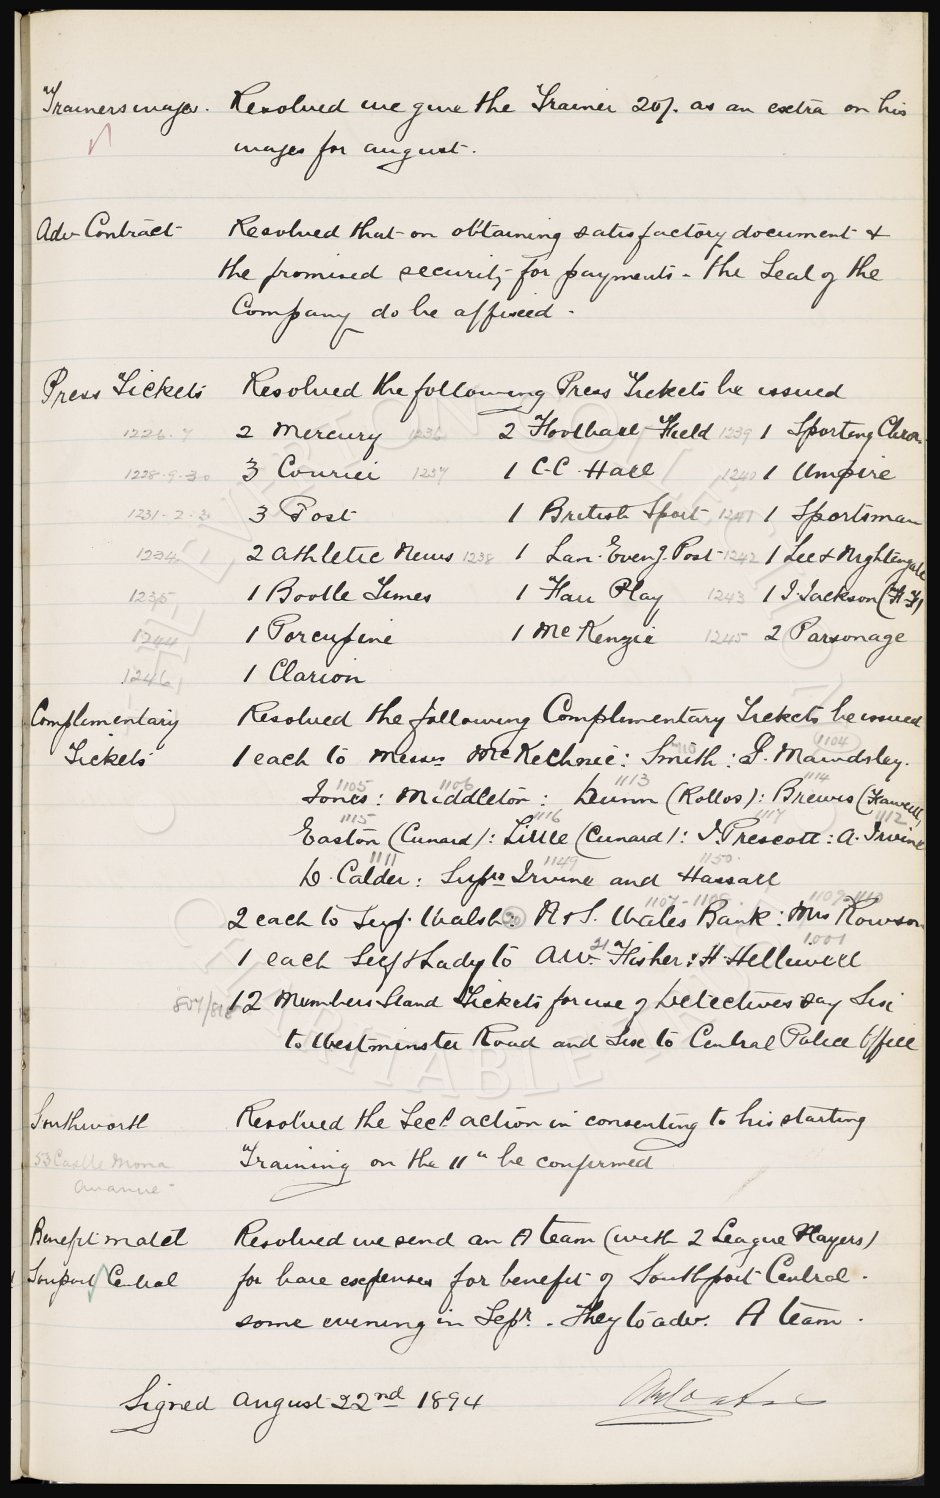 Trainers wages. Resolved we give the Trainer 20/. as an extra on his
wages for august.
Adv Contract Resolved that on obtaining satisfactory document &
the promised security for payments - the Seal of the
Company do be affixed.
Press Tickets Resolved the following Press Tickets be issued
1226.7 2 Mercury 1236 2 Football Field 1239 1 Sporting Chron.
1228.9.30 3 Courier 1237 1 C.C. Hall 1240 1 Umpire
1231.2.3 3 Post 1 British Sport 1241 1 Sportsman
1234 2 Athletic News 1238 1 Lan. Eveng. Post 1242 1 Lee & Nightengale
1235 1 Bootle Times 1 Fair Play 1243 1 J. Jackson (F.F)
1244 1 Porcupine 1 McKenzie 1245 2 Parsonage
1246 1 Clarion
Complimentary Resolved the following Complimentary Tickets be issued
Tickets 1 each to Messrs McKechnie: Smith: G. Mawdsley. 1104
1105 1106 1113 1114
Jones: Middleton: Dunn (Rollos): Brewis (
1115 1116 1117 1112
Easton (Cunard): Little (Cunard): J. Prescott: A. Irvine
1111 1149 1150
D. Calder: Supts Irvine and Hassall
1107-1108 1109-1110
2 each to Supt. Walsh: N & S. Wales Bank: Mrs Rowson
21 1001
1 each Self & Lady to A.W. Fisher: H. Hellewell
807/818 12 Members Stand Tickets for use of Detectives say Six
to Westminster Road and Six to Central Police Office
Southworth Resolved the Secy action in consenting to his starting
53 Castle Mona Training on the 11th be confirmed
Avanue
Benefit match Resolved we send an A team (with 2 League Players)
Soupor Central for bare expenses for benefit of Southport Central.
some evening in Sepr. They to adv. A team.
Signed August 22nd 1894